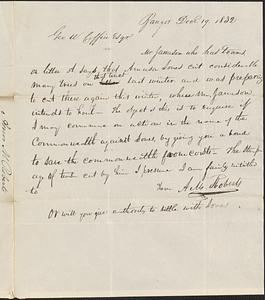 Bangor Dec 19. 1832
Geo W Coffin Esqr
Mr Jameson who has Town
or letter A says that Amiel Jones cut considerable
many trees on that tract last winter and was preparing
to cut there again this winter, where Mr Jameson
intends to hunt. The object of this is to enquire if
I may commence an action in the name of the
Commonwealth against Jones, by giving you a bond
to save the commonwealth from costs. The
age of timber cut by him I presume I am fairly intitled
to
Yours A. M. Roberts
or will you give authority to settle with Jones
A M Roberts